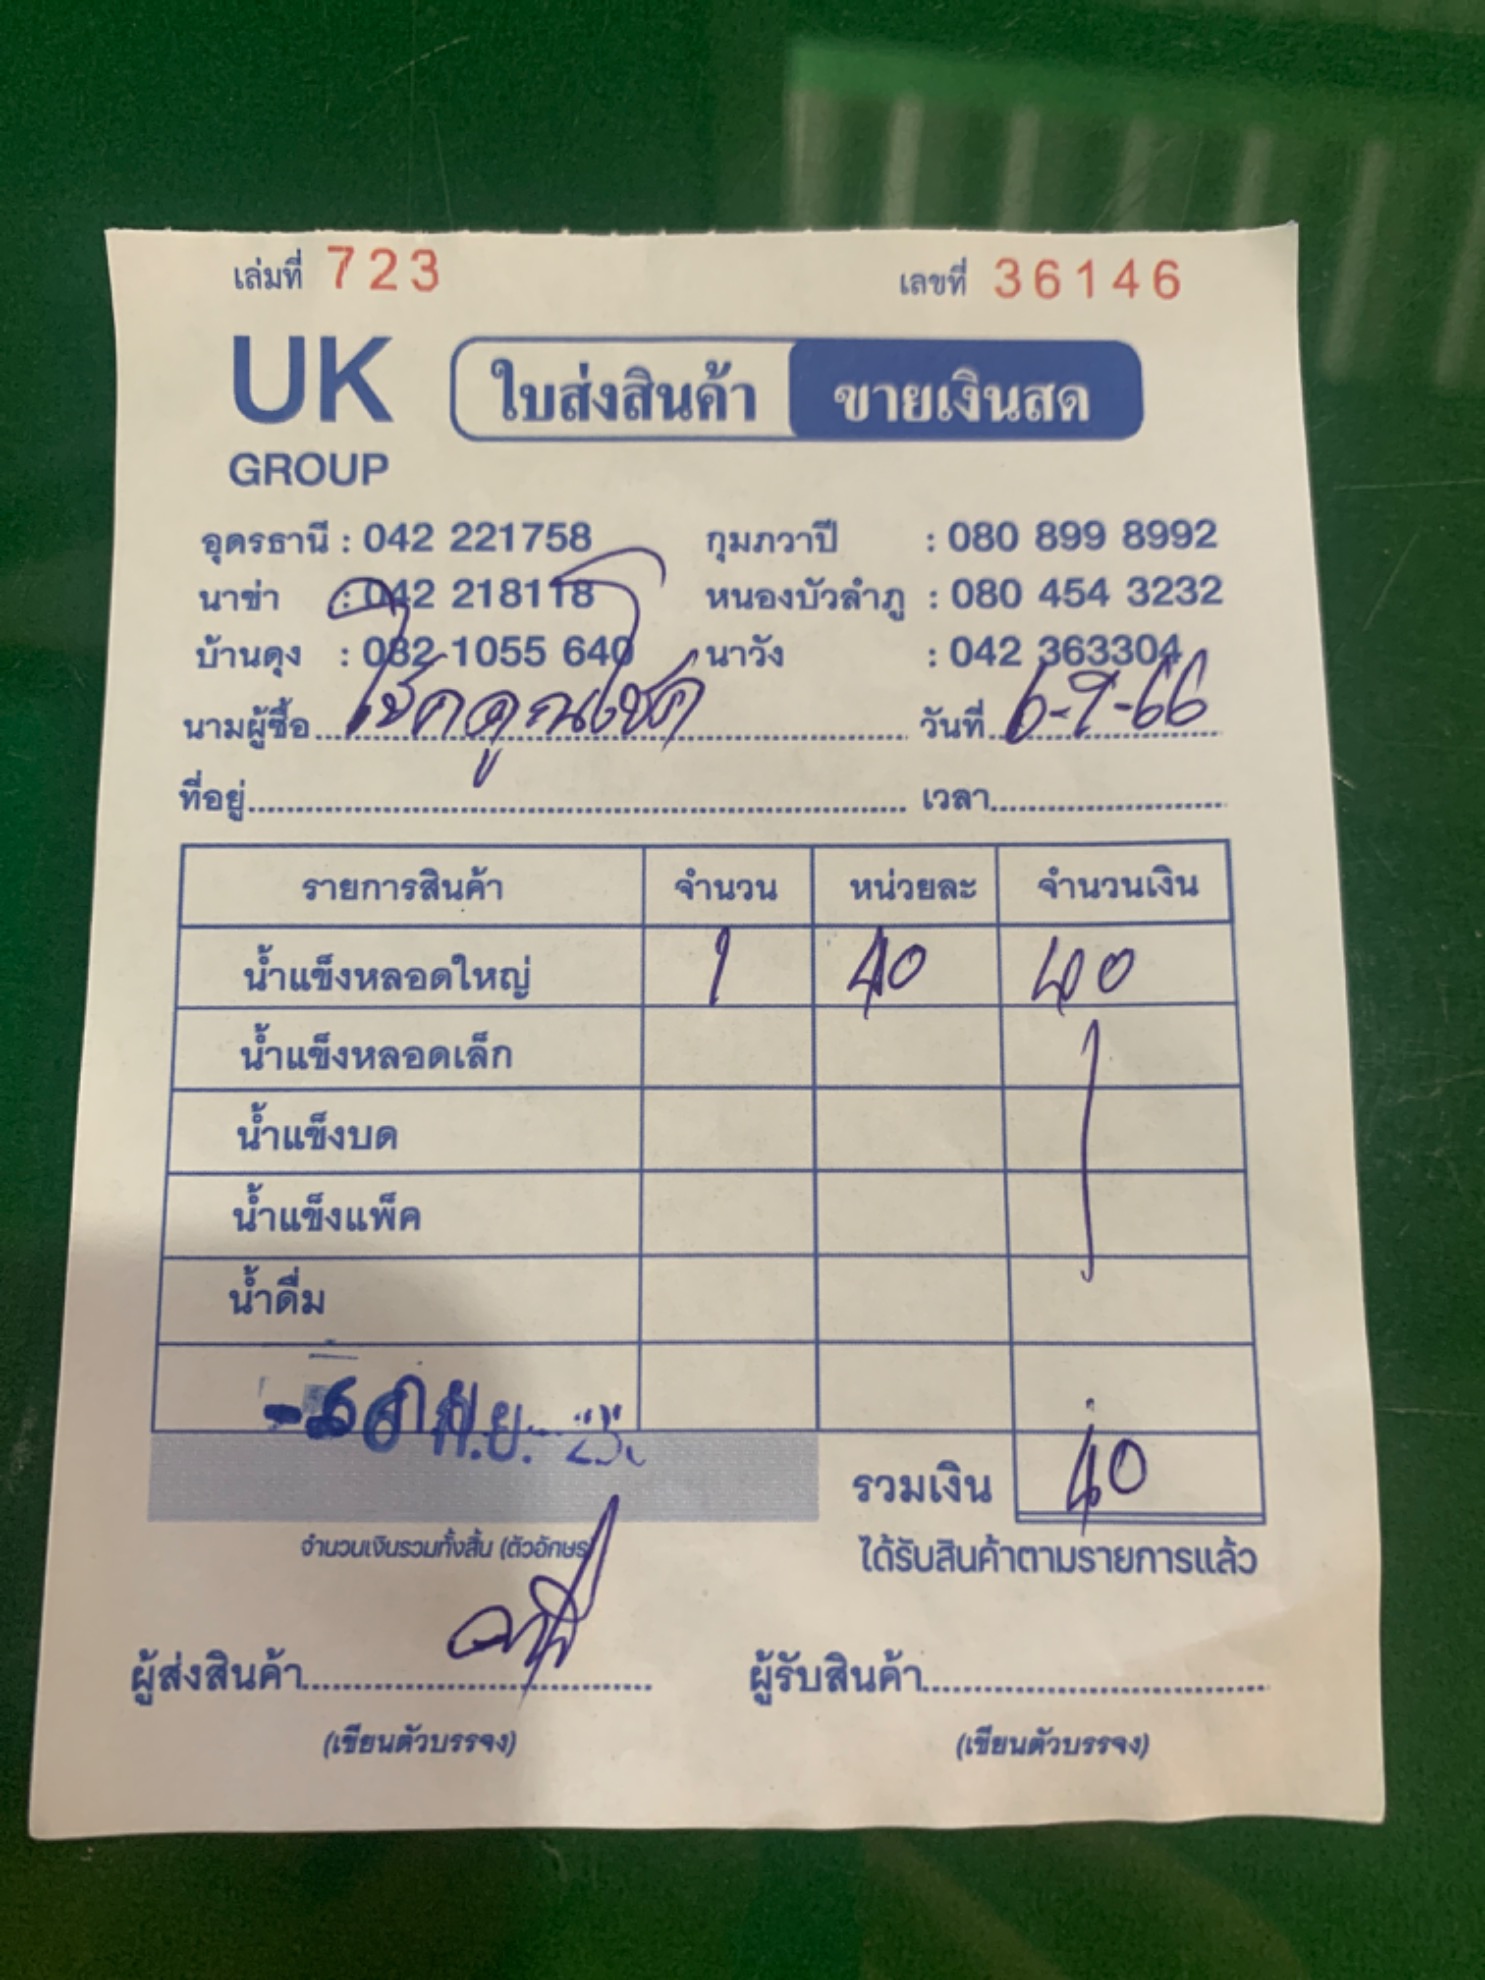 เล่มที่ 723 เลขที่ 36146
UK GROUP ใบส่งสินค้า ขายเงินสด
อุดรธานี : 042 221758 กุมภวาปี : 080 899 8992
นาข่า : 042 218118 หนองบัวลำภู : 080 454 3232
บ้านดุง : 082 1055 640 นาวัง : 042 363304
นามผู้ซื้อ โชคคูณโชค วันที่ 6-9-66
ที่อยู่ เวลา
รายการสินค้า จำนวน หน่วยละ จำนวนเงิน
น้ำแข็งหลอดใหญ่ 1 40 40
น้ำแข็งหลอดเล็ก
น้ำแข็งบด
น้ำแข็งแพ็ค
น้ำดื่ม
-6 ก.ย.
รวมเงิน 40
จำนวนเงินรวมทั้งสิ้น (ตัวอักษร) ได้รับสินค้าตามรายการแล้ว
ผู้ส่งสินค้า ผู้รับสินค้า
(เขียนตัวบรรจง) (เขียนตัวบรรจง)